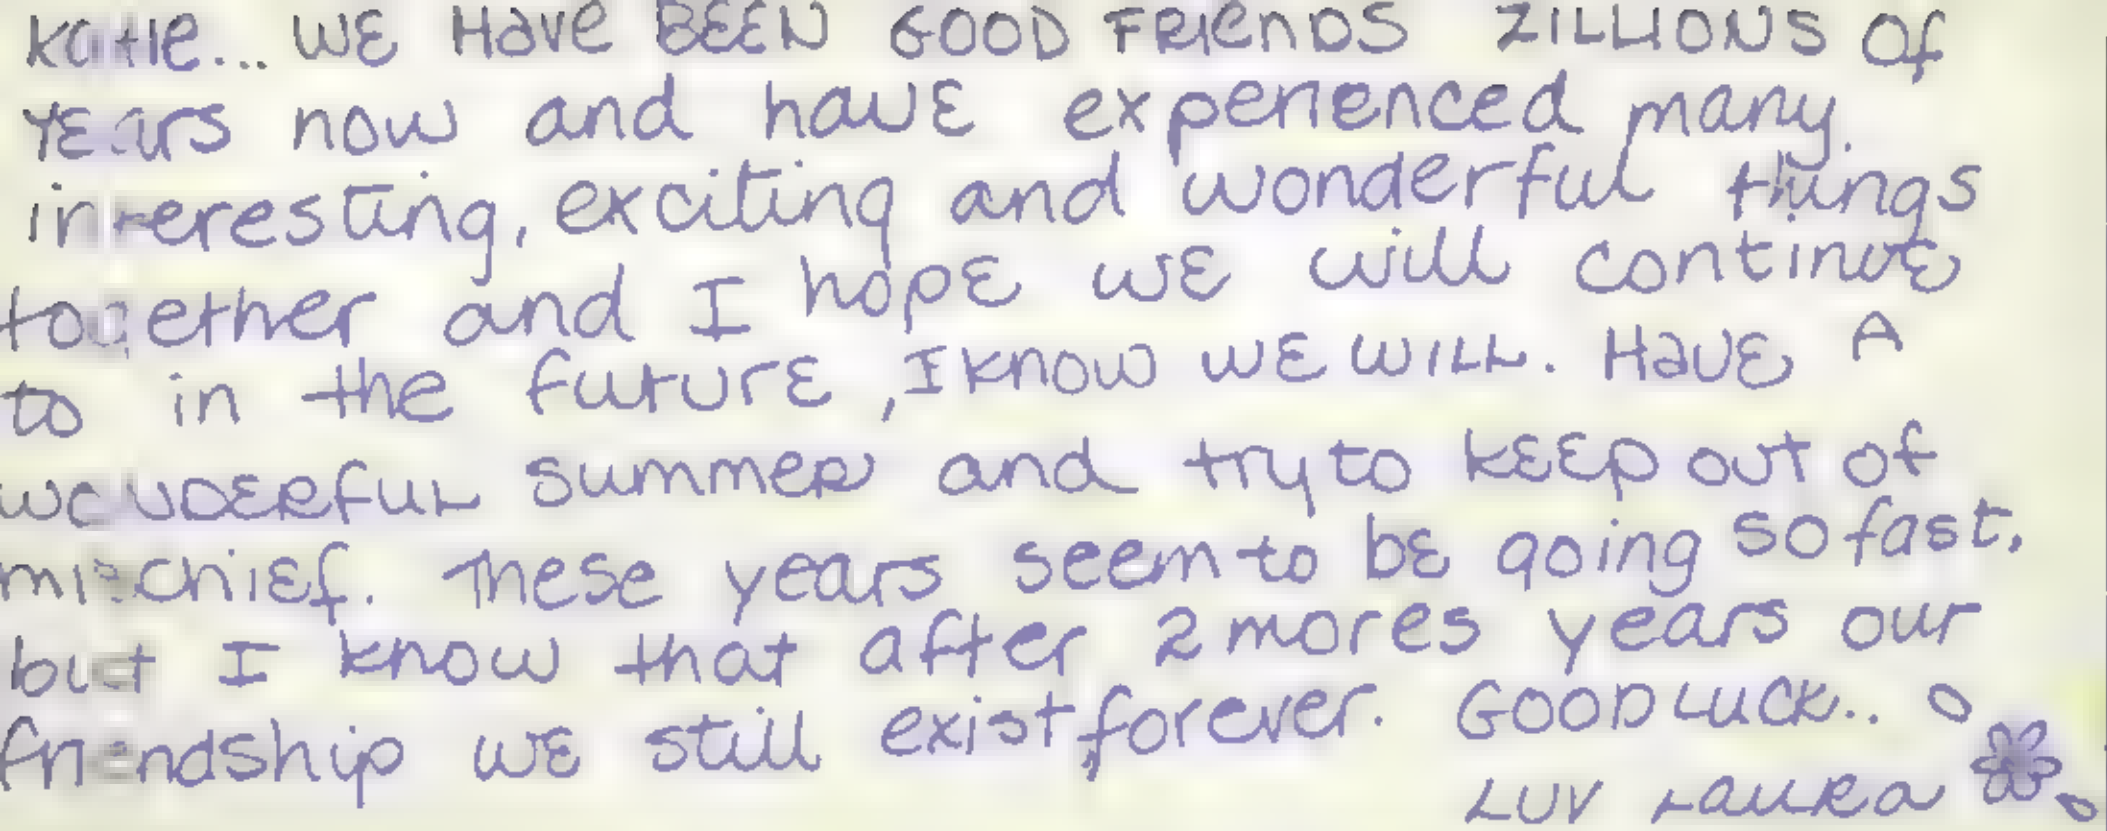 Katie... WE HAVE BEEN GOOD FRIENDS ZILLIONS OF
YEARS now and have experienced many
interesting, exciting and wonderful things
together and I hope we will continue
to in the future, I know WE WILL. HAVE A
WONDERFUL summer and try to KEEP out of
mischief. These years seem to be going so fast.
but I know that after 2 mores years our
friendship we still exist, forever. GOOD LUCK..
LUV LAURA